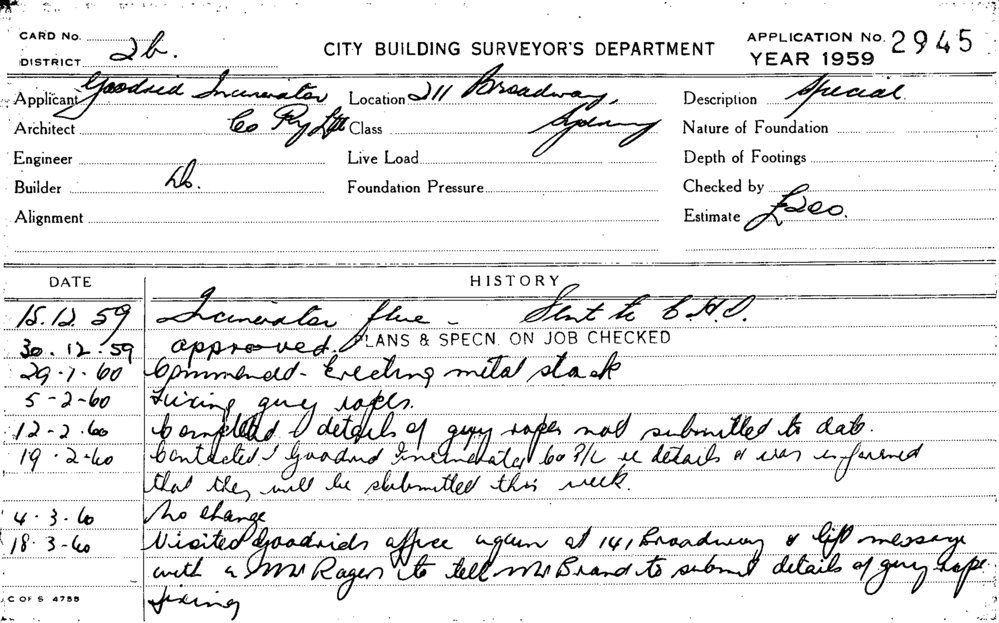 CARD No.
DISTRICT 2b.
CITY BUILDING SURVEYOR'S DEPARTMENT
APPLICATION No. 2945
YEAR 1959
Applicant Goodrid Incinerator
Co Pty Ltd
Location 211 Broadway,
Sydney
Description Special.
Architect
Class
Nature of Foundation
Engineer
Live Load
Depth of Footings
Builder Do.
Foundation Pressure
Checked by
Alignment
Estimate £200.
DATE HISTORY
15.12.59 Incinerator flue - Sent to C.H.O.
30.12.59 approved. PLANS & SPECN. ON JOB CHECKED
29-1-60 Commenced - Erecting metal stack
5-2-60 Fixing guy ropes.
12-2-60 Completed & details of guy ropes not submitted to date.
19.2-60 Contacted Goodrid Incinerator Co P/L re details & was informed
that they will be submitted this week.
4.3.60 No change
18.3-60 Visited Goodrids office again at 141 Broadway & left message
with a Mr Rogers to tell Mr Brand to submit details of guy rope
fixing
C OF S 4755